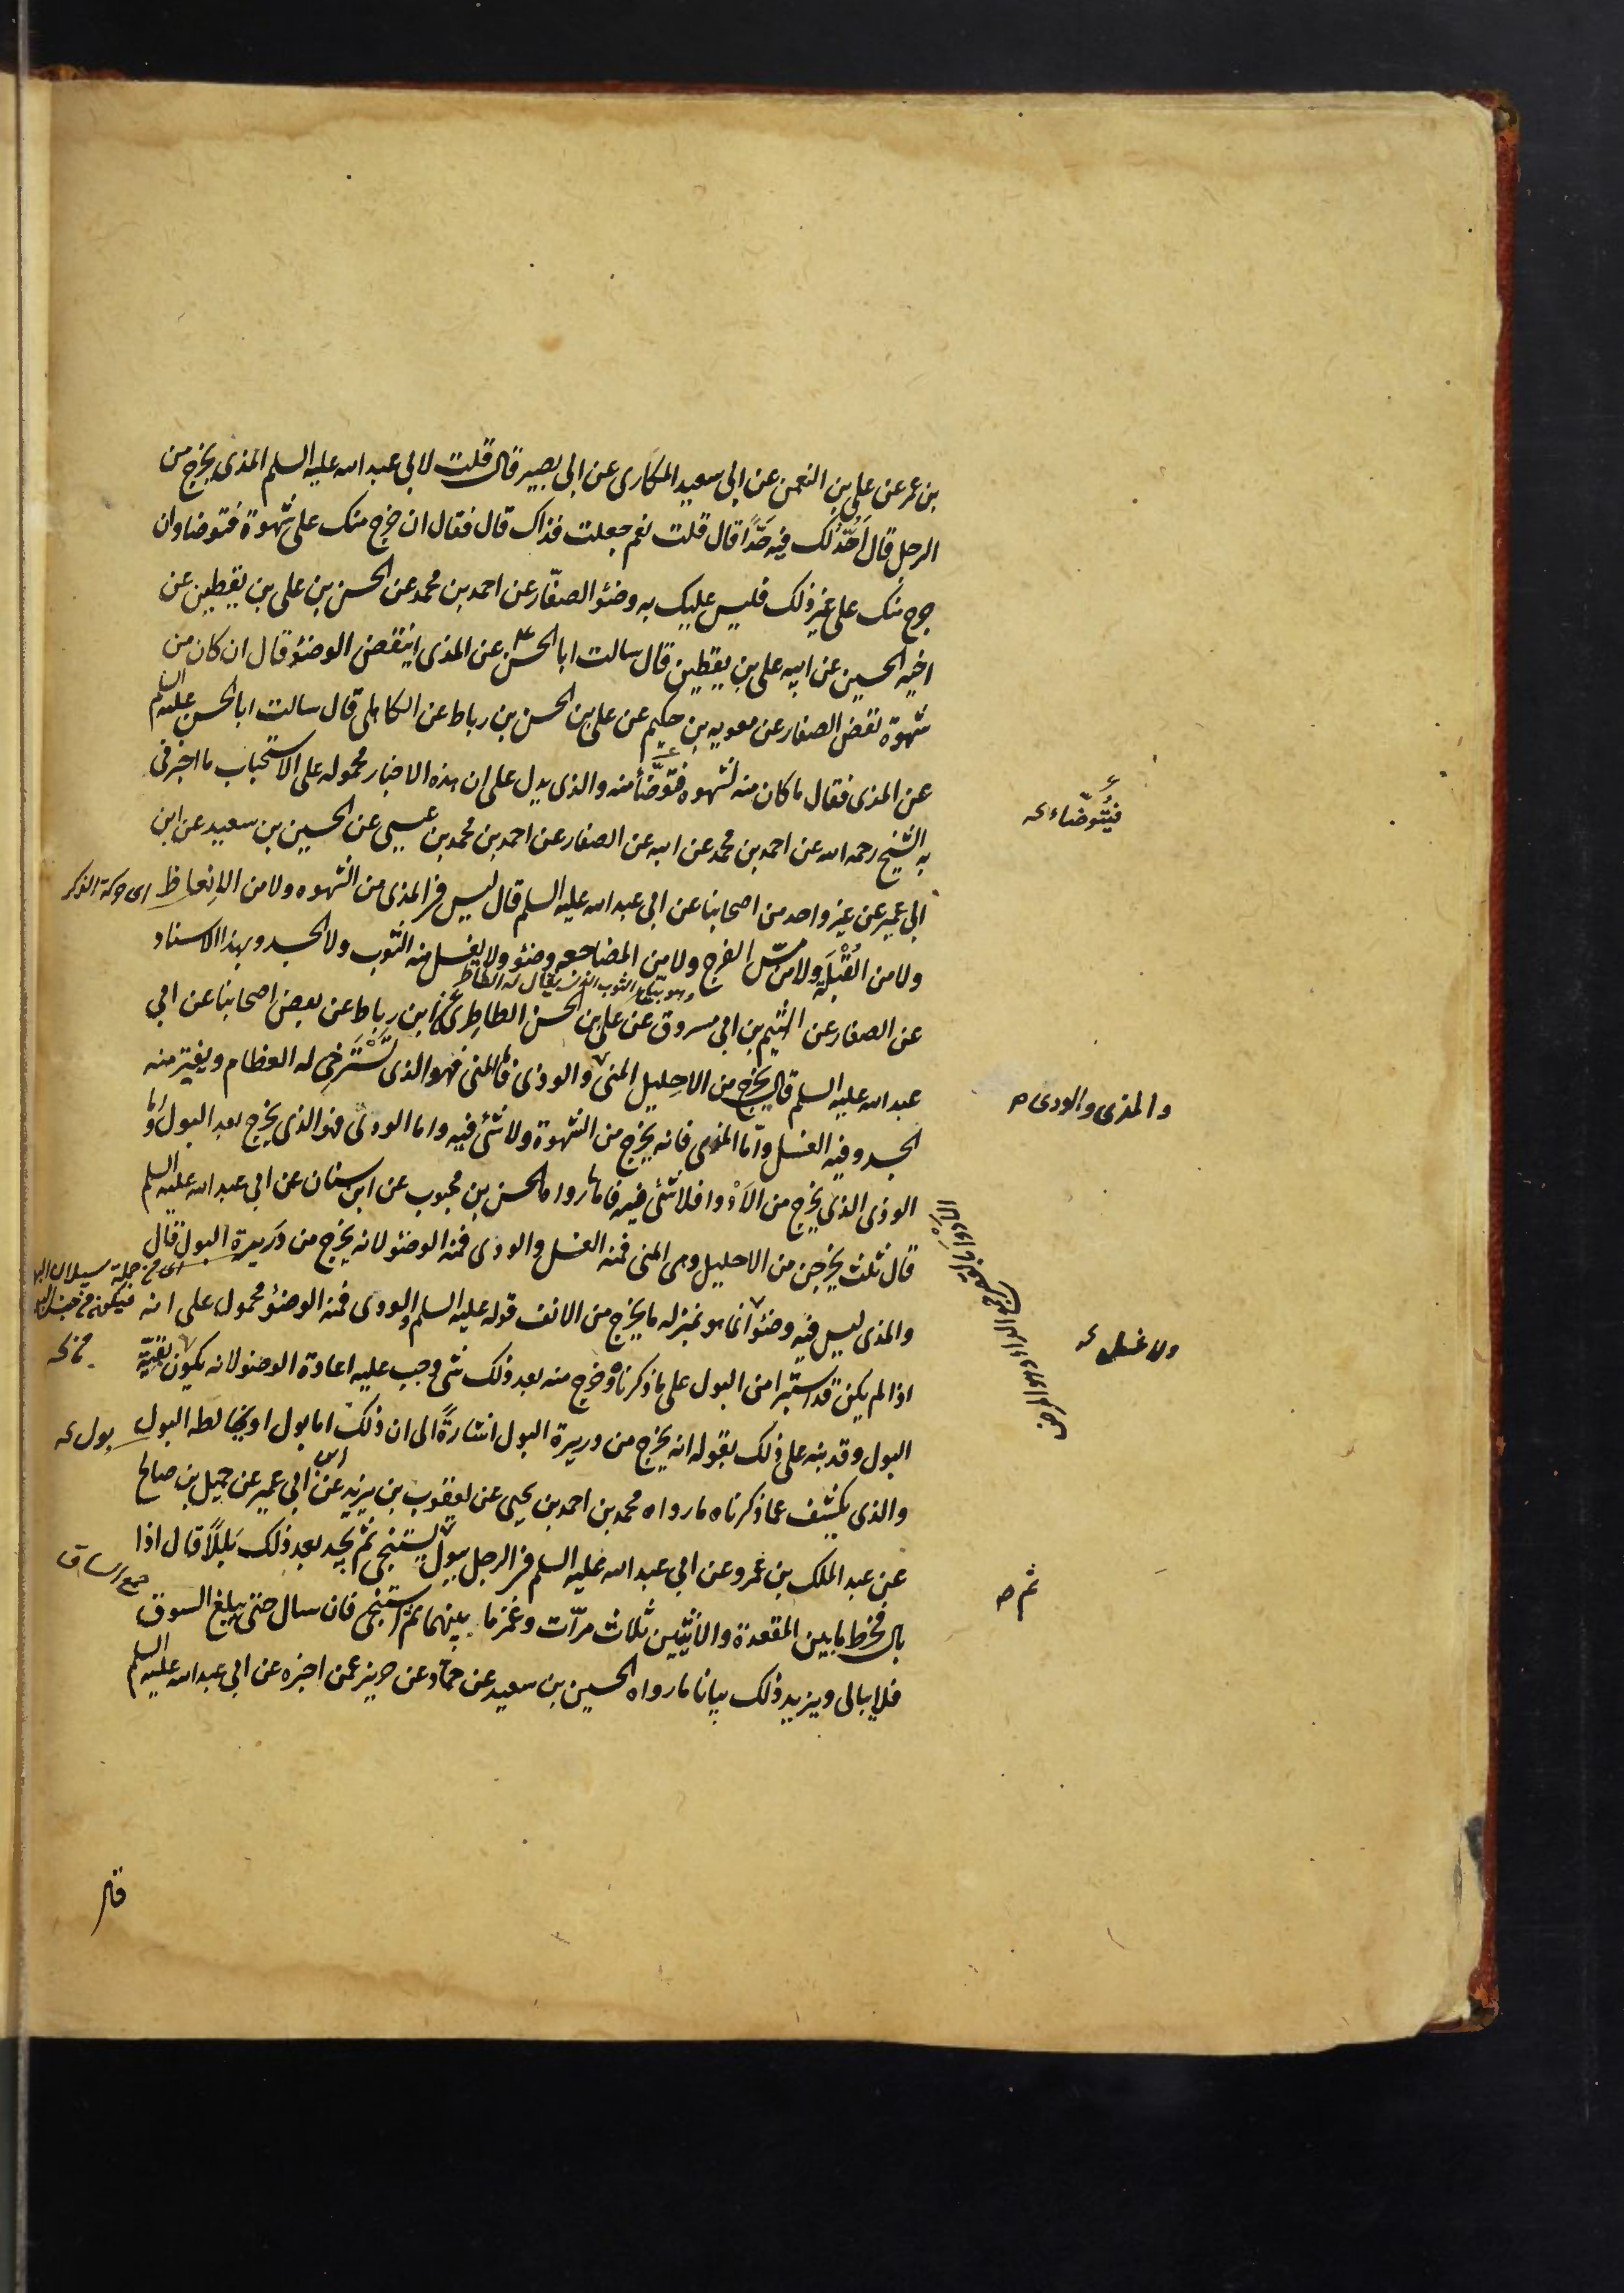 بن عمر عن علي بن النعمن عن ابي سعيد المكارى عن ابي بصير قال قلت لابي عبد الله عليه السلم المذى يخرج من
الرجل قال اَحُدُّ لك فيه حَدًّا قال قلت نعم جعلت فداك قال فقال ان خرج منك على شهوة فتوضا وان
خرج منك على غير ذلك فليس عليك به وضئو الصفّار عن احمد بن محمد عن الحسن بن على بن يقطين عن
اخيه الحسين عن ابيه على بن يقطين قال سالت ابا الحسن ع عن المذى اينقض الوضئو قال ان كان من
شهوة نقض الصفار عن معويه بن حكيم عن على بن الحسن بن رباط عن الكاهلى قال سالت ابا الحسن عليه السلم
عن المذى فقال ما كان منه لشهوه فتوضّأ منه والذى يدل على ان هذه الاخبار محموله على الاستحباب ما اخبرنى
فيتوضّاء
به الشيخ رحمه الله عن احمد بن محمد عن ابيه عن الصفار عن احمد بن محمد بن عيسى عن الحسين بن سعيد عن ابن
ابي عمير عن غير واحد من اصحابنا عن ابي عبد الله عليه السلم قال ليس فى المذى من الشهوه ولا من الاِنعاظ
اى حركة الذكر
ولا من القُبْلَة ولا من مسّ الفرج ولا من المضاجعه وضئو ولا يغسل منه الثوب ولا الجسد وبهذا الاسناد
وهو بياع الثوب الذى يقال له الطاطر
عن الصفار عن الهثيم بن ابي مسروق عن على بن الحسن الطاطرى عن ابن رباط عن بعض اصحابنا عن ابي
عبد الله عليه السلم قال يخرج من الاحليل المنى والوذى فاما المنى فهو الذى تَسْتَرخى له العظام ويفتر منه
والمذى والودى ص
الجسد وفيه الغسل وامّا المذى فانه يخرج من الشهوة ولا شئ فيه واما الودى فهو الذى يخرج بعد البول واما
الوذى الذى يخرج من الاَدْوا فلا شئ فيه فاما ما رواه الحسن بن محبوب عن ابن سنان عن ابي عبد الله عليه السلم
قال ثلث يخرجن من الاحليل وهى المنى فمنه الغسل والودى فمنه الوضئو لانه يخرج من دَرِيرة البول قال
والمذى ليس فيه وضئو انما هو بمنزله ما يخرج من الانف قوله عليه السلم والودى فمنه الوضئو محمول على انه
ولا غسل
اذا لم يكن قد استبرا من البول على ما ذكرناه وخرج منه بعد ذلك شئ وجب عليه اعادة الوضئو لانه يكون بقيّة
البول وقد نبه على ذلك بقوله انه يخرج من دريرة البول اشارةً الى ان ذلك اما بول او يخالطه البول
بول
والذى يكشف عما ذكرناه ما رواه محمد بن احمد بن يحيى عن يعقوب بن يزيد عن ابن ابي عمير عن جميل بن صالح
عن عبد الملك بن عمرو عن ابي عبد الله عليه السلم فى الرجل يبول يستنجى ثم يجد بعد ذلك بَلَلاً قال اذا
ثم ص
بال فخرط ما بين المقعدة والانثيين ثلاث مرّات وغمز ما بينهما ثم استنجى فان سال حتى يبلغ السوق
جمع الساق
فلا يبالى ويزيد ذلك بيانا ما رواه الحسين بن سعيد عن حمّاد عن حريز عمن اخبره عن ابي عبد الله عليه السلم
قال